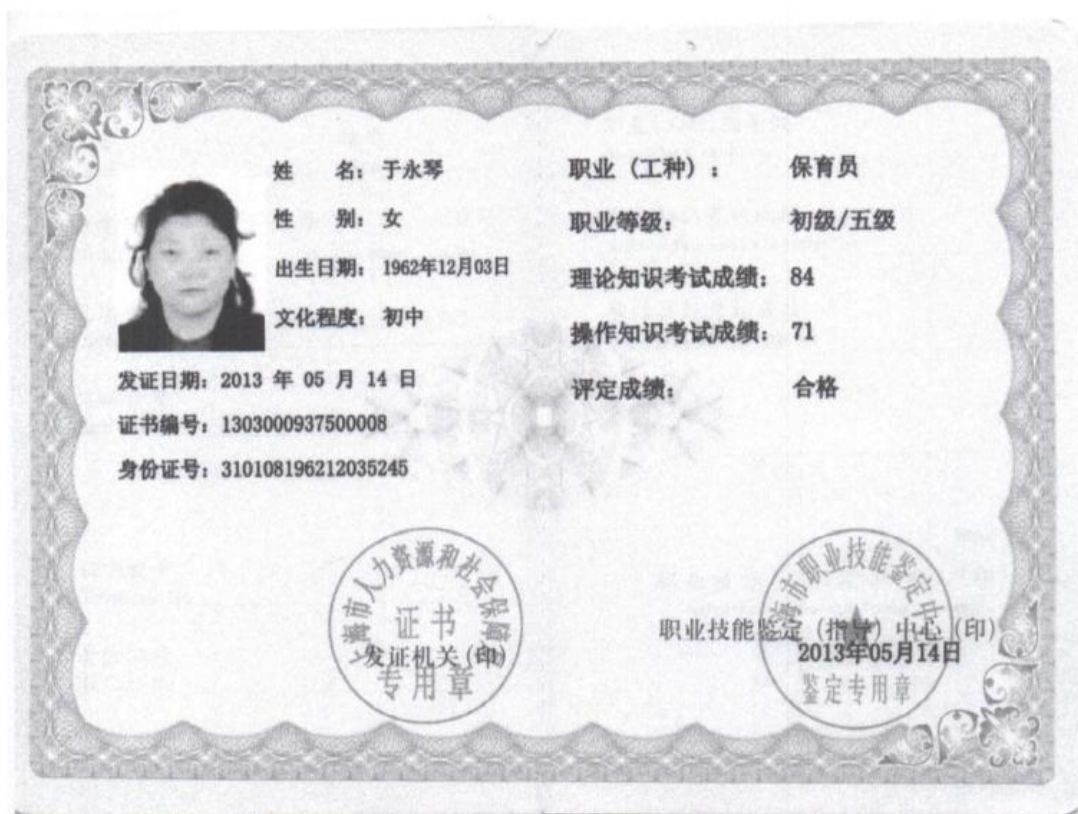 姓 名：于永琴
性 别：女
出生日期：1962年12月03日
文化程度：初中
发证日期：2013 年 05 月 14 日
证书编号：1303000937500008
身份证号：310108196212035245
职业（工种）： 保育员
职业等级： 初级/五级
理论知识考试成绩： 84
操作知识考试成绩： 71
评定成绩： 合格
上海市人力资源和社会保障局
证书
发证机关(印)
专用章
上海市职业技能鉴定中心
职业技能鉴定（指导）中心(印)
2013年05月14日
鉴定专用章